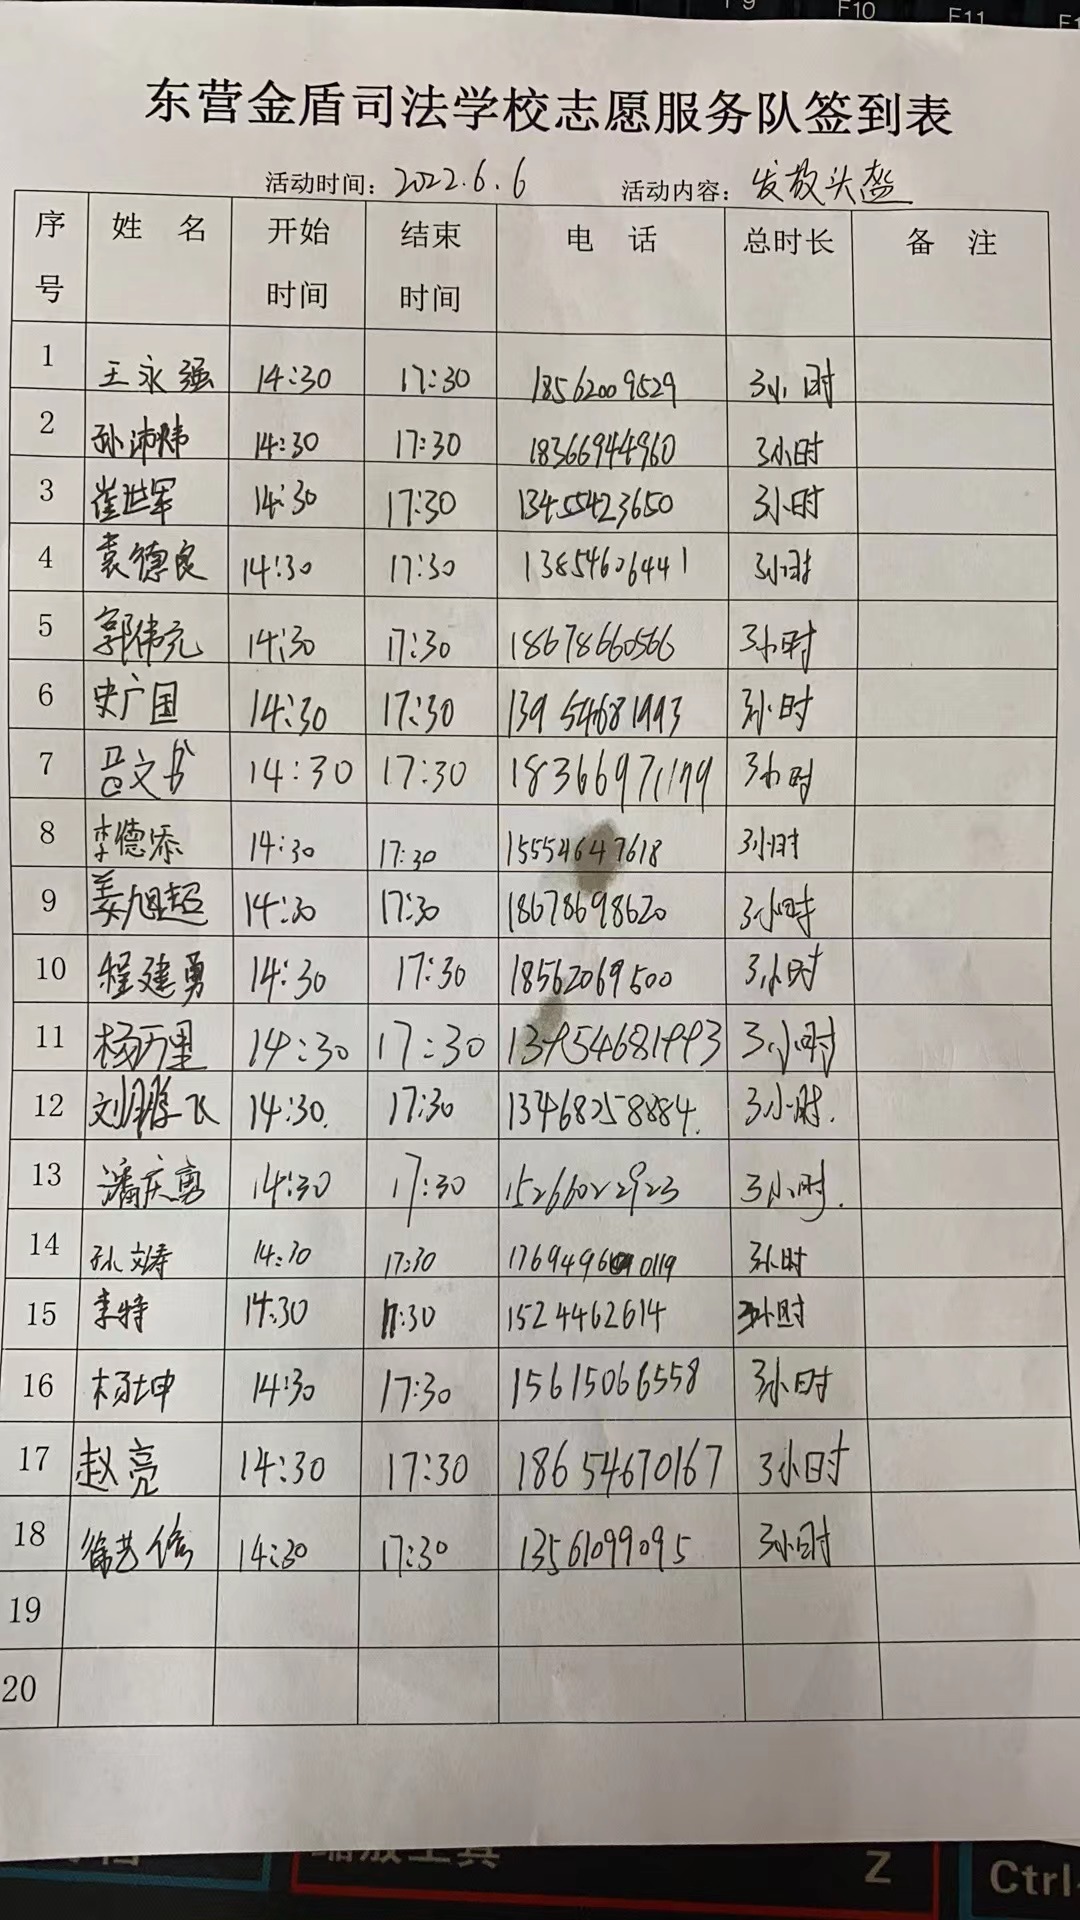 F9 F10 F11
东营金盾司法学校志愿服务队签到表
活动时间：2022.6.6 活动内容：发放头盔
序号 姓名 开始时间 结束时间 电话 总时长 备注
1 王永强 14:30 17:30 18562009529 3小时
2 孙沛炜 14:30 17:30 18366944960 3小时
3 崔世军 14:30 17:30 13455423650 3小时
4 袁德良 14:30 17:30 13854626441 3小时
5 郭伟亮 14:30 17:30 18678660566 3小时
6 史广国 14:30 17:30 13954681993 3小时
7 吕文书 14:30 17:30 3小时
8 李德添 14:30 17:30 15554647618 3小时
9 姜旭超 14:30 17:30 18678698620 3小时
10 程建勇 14:30 17:30 18562069500 3小时
11 杨万里 14:30 17:30 13954681993 3小时
12 刘鹏飞 14:30. 17:30 13468258884. 3小时.
13 潘庆勇 14:30 17:30 15266022923 3小时.
14 孙文涛 14:30 17:30 3小时
15 李特 14:30 17:30 1524462614 3小时
16 杨坤 14:30 17:30 15615066558 3小时
17 赵亮 14:30 17:30 18654670167 3小时
18 徐艺信 14:30 17:30 13561099095 3小时
19
20
缩放工具 Z Ctrl